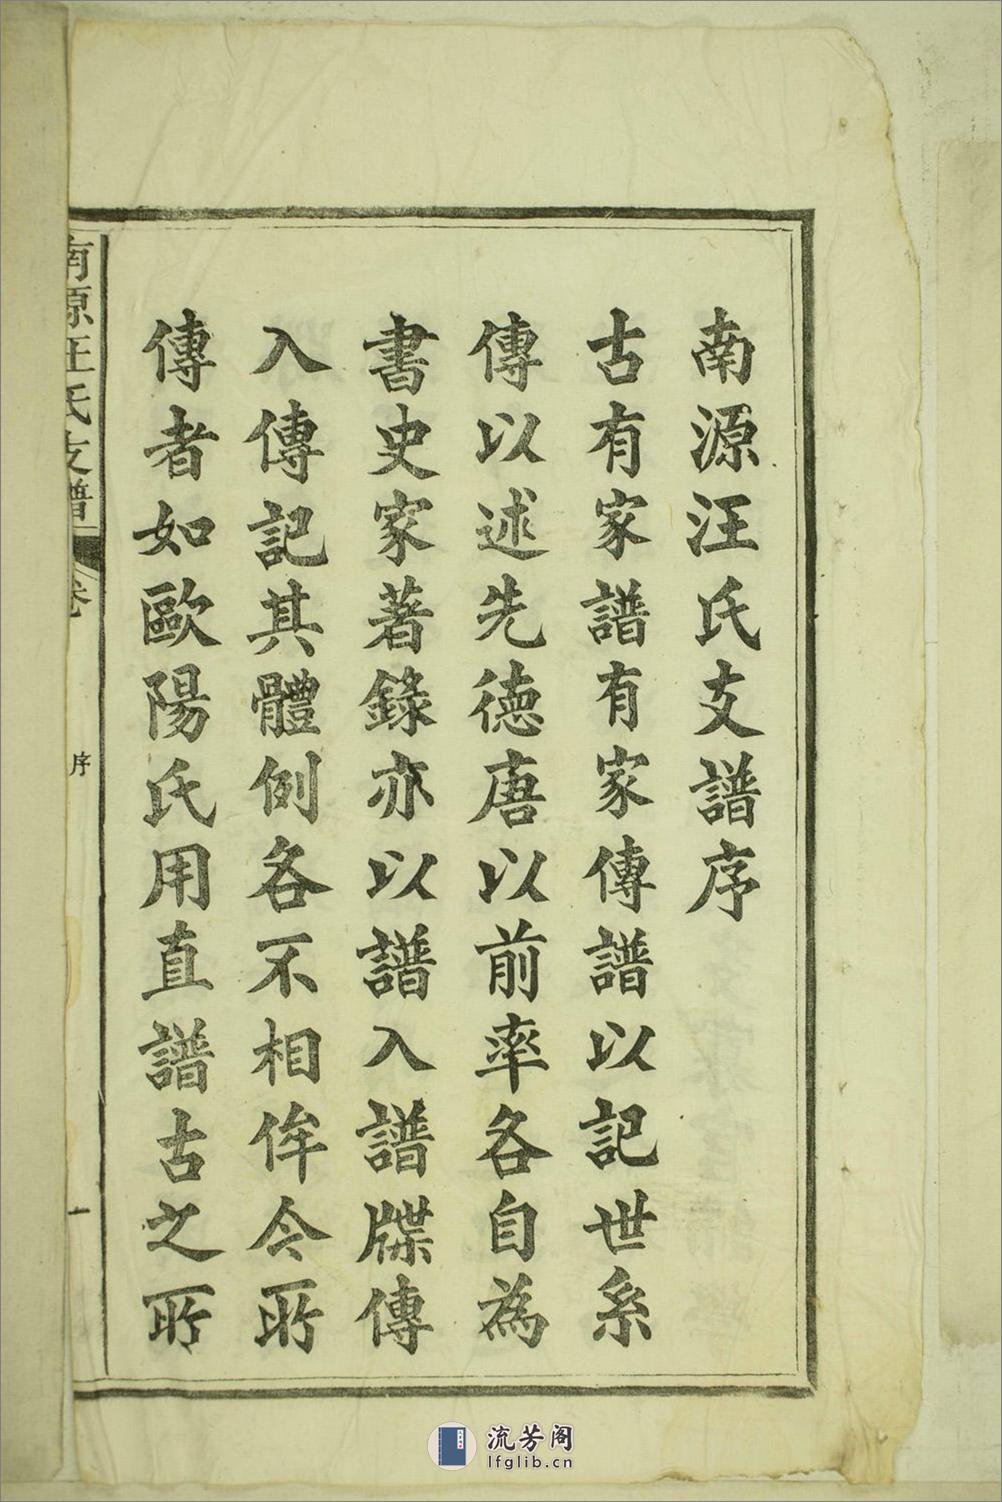 南源汪氏支譜序
古有家譜有家傳譜以記世系
傳以述先德唐以前率各自為
書史家著錄亦以譜入譜牒傳
入傳記其體例各不相侔今所
傳者如歐陽氏用直譜古之所
南源汪氏支譜
卷
序
一
流芳阁
lfglib.cn